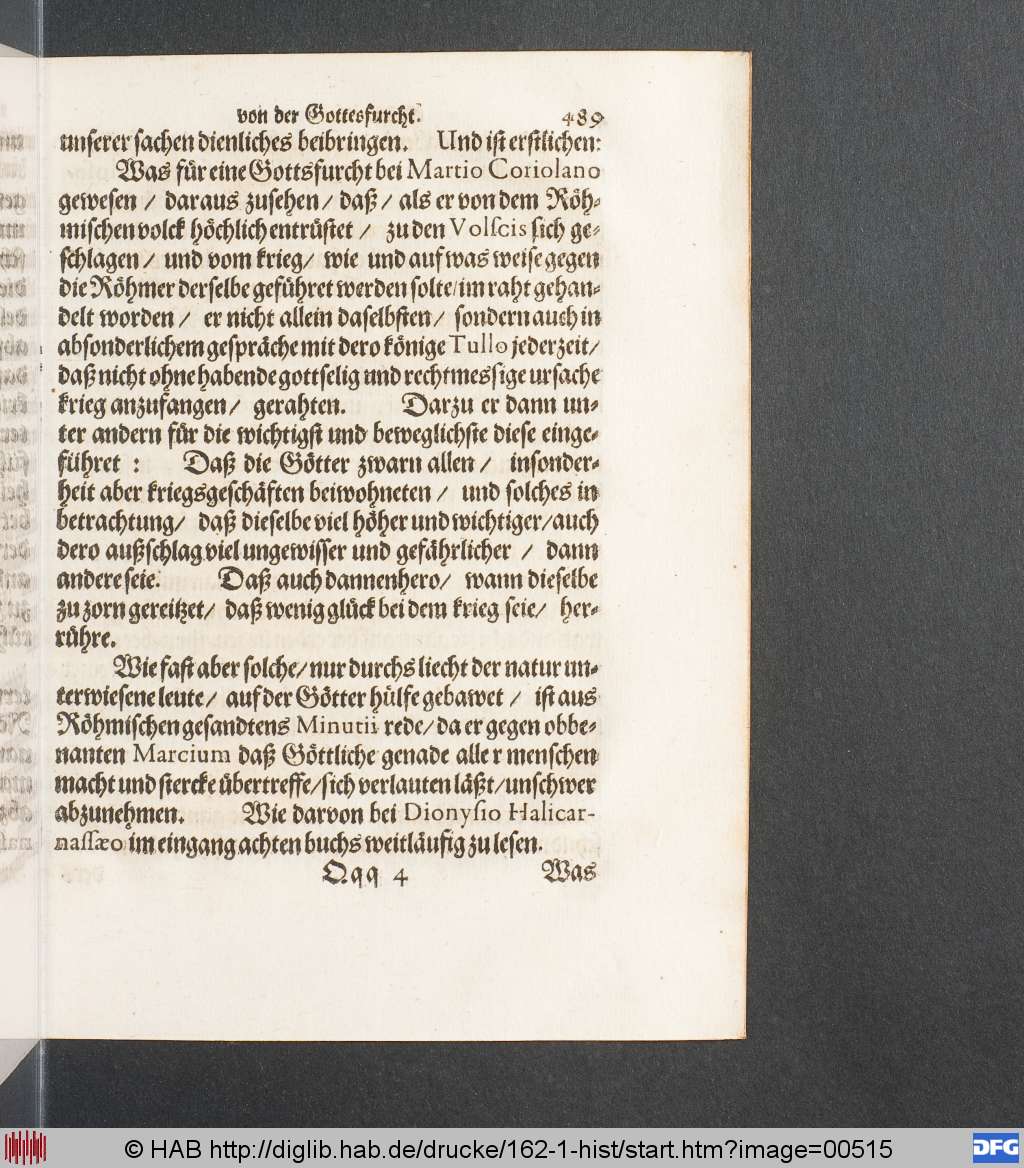 von der Gottesfurcht. 489
unserer sachen dienliches beibringen. Und ist erstlichen:
Was für eine Gottsfurcht bei Martio Coriolano
gewesen / daraus zusehen / daß / als er von dem Röh-
mischen volck höchlich entrüstet / zu den Volscis sich ge-
schlagen / und vom krieg / wie und auf was weise gegen
die Röhmer derselbe geführet werden solte / im raht gehan-
delt worden / er nicht allein daselbsten / sondern auch in
absonderlichem gespräche mit dero könige Tullo jederzeit /
daß nicht ohne habende gottselig und rechtmessige ursache
krieg anzufangen / gerahten. Darzu er dann un-
ter andern für die wichtigst und beweglichste diese einge-
führet : Daß die Götter zwarn allen / insonder-
heit aber kriegsgeschäften beiwohneten / und solches in
betrachtung / daß dieselbe viel höher und wichtiger / auch
dero außschlag viel ungewisser und gefährlicher / dann
andere seie. Daß auch dannenhero / wann dieselbe
zu zorn gereitzet / daß wenig glück bei dem krieg seie / her-
rühre.
Wie fast aber solche / nur durchs liecht der natur un-
terwiesene leute / auf der Götter hülfe gebawet / ist aus
Röhmischen gesandtens Minutii rede / da er gegen obbe-
nanten Marcium daß Göttliche genade aller menschen
macht und stercke übertreffe / sich verlauten läßt / unschwer
abzunehmen. Wie darvon bei Dionysio Halicar-
nassæo im eingang achten buchs weitläufig zu lesen.
Qqq 4 Was
© HAB http://diglib.hab.de/drucke/162-1-hist/start.htm?image=00515
DFG